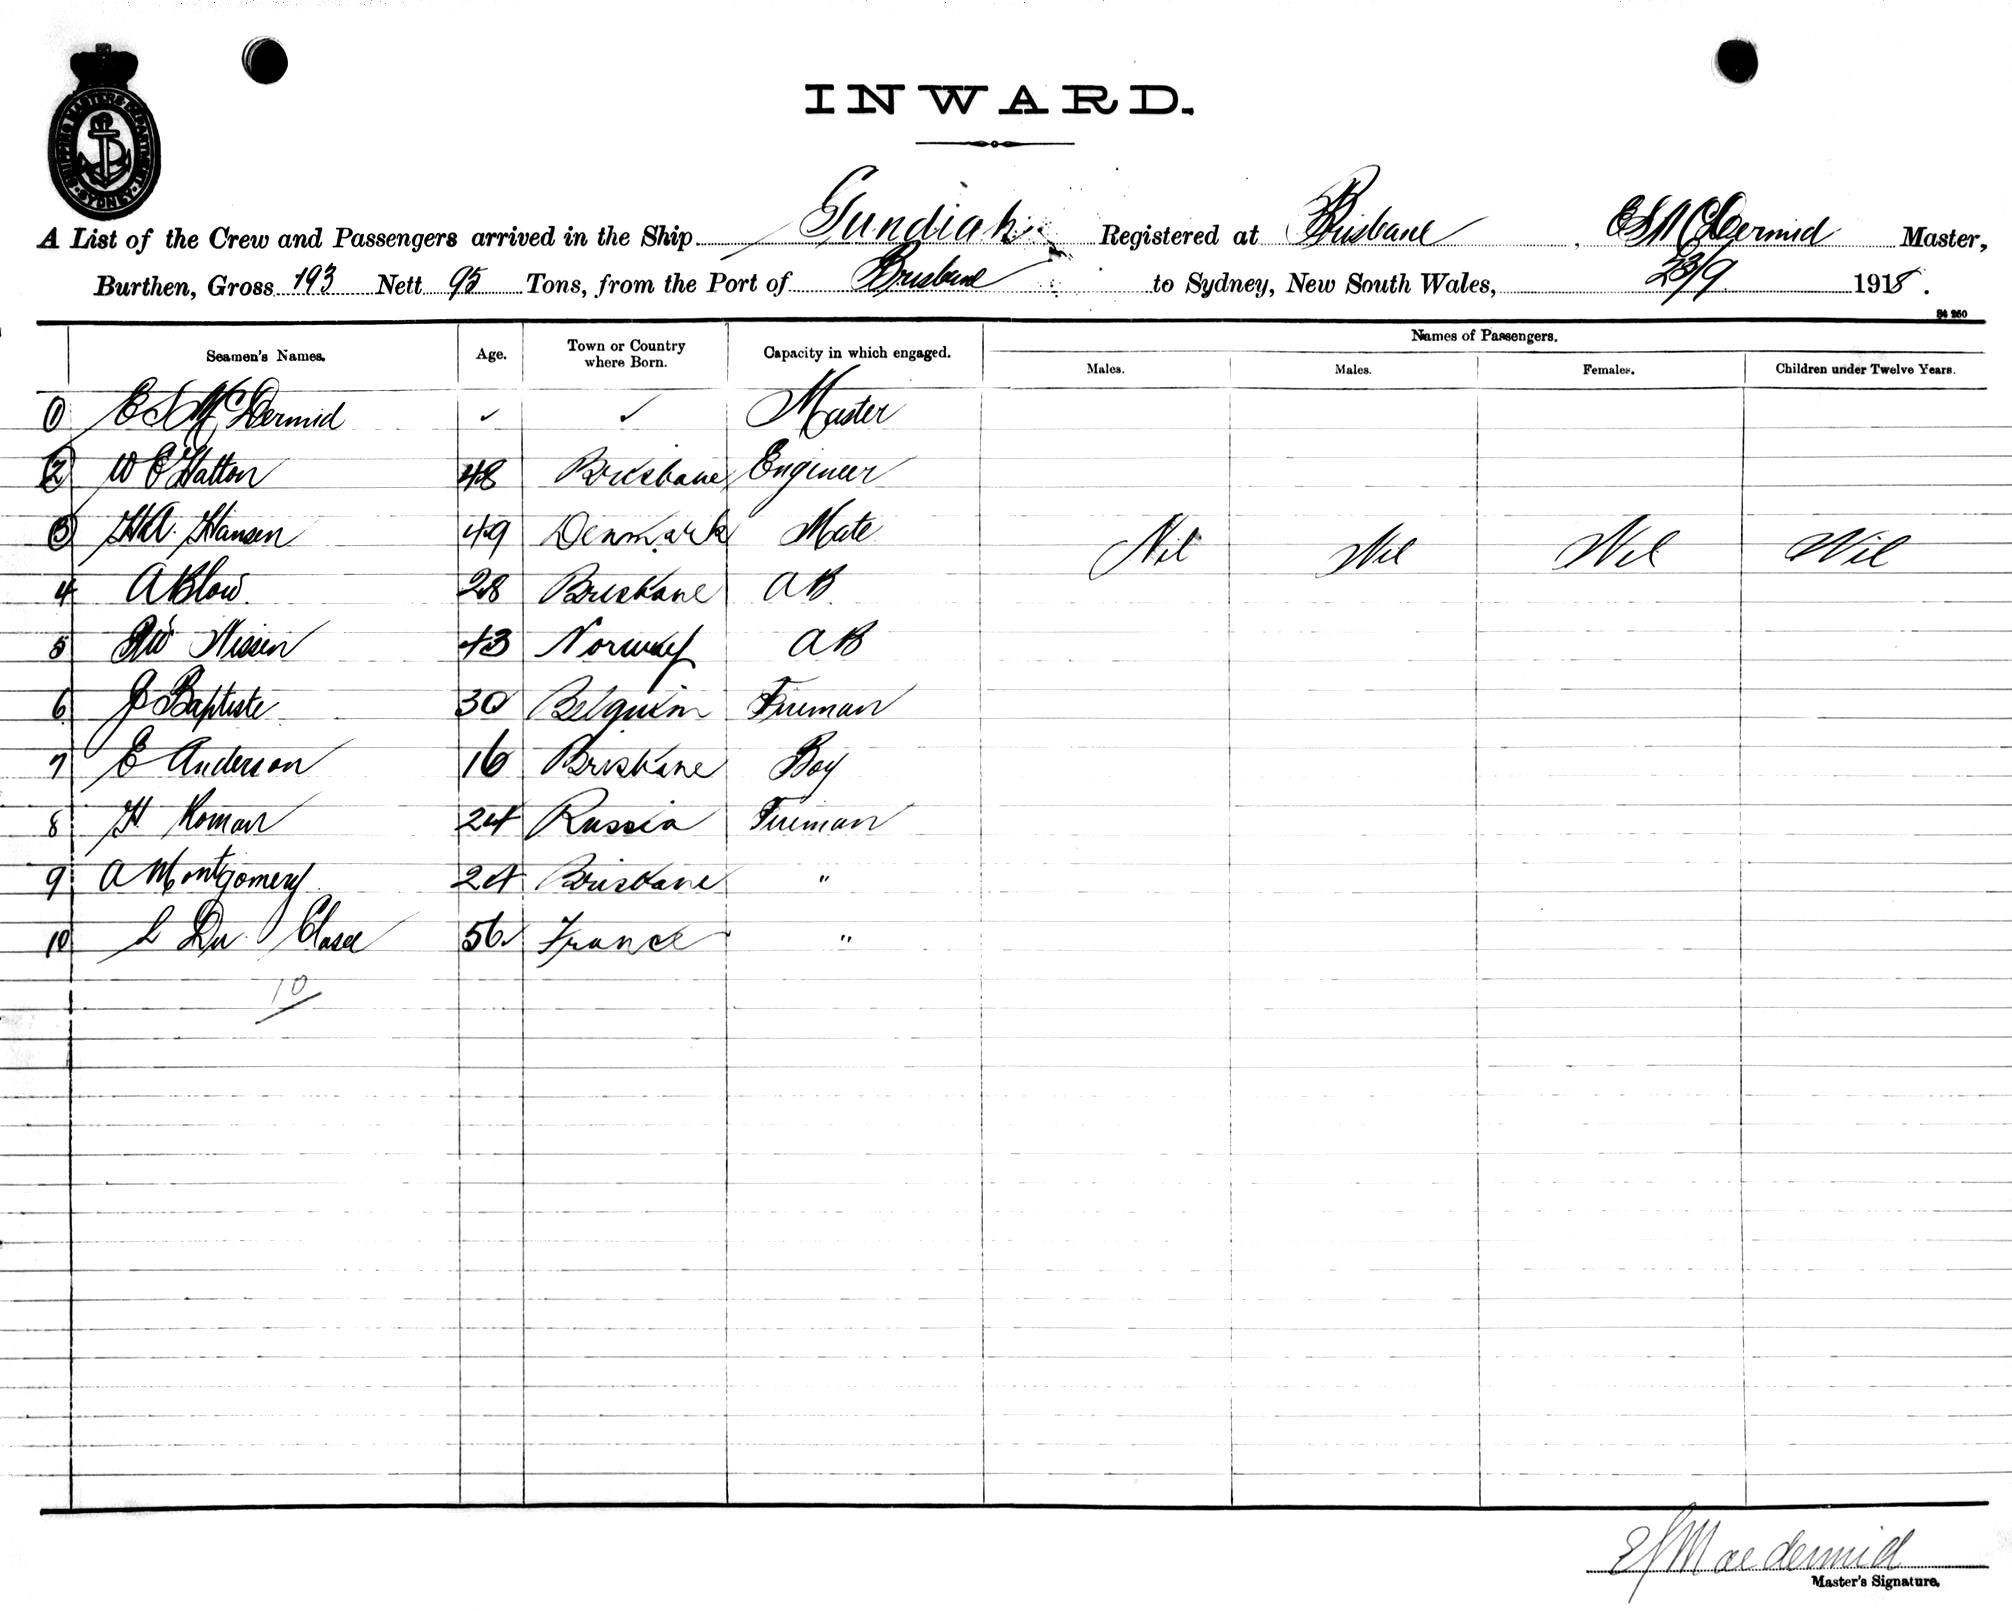 SHIPPING MASTERS DEPARTMENT SYDNEY
INWARD.
A List of the Crew and Passengers arrived in the Ship Gundiah Registered at Brisbane, E S McDermid Master,
Burthen, Gross 193 Nett 95 Tons, from the Port of Brisbane to Sydney, New South Wales, 23/9 1918.
St 250
Seamen's Names. Age. Town or Country where Born. Capacity in which engaged. Names of Passengers.
Males. Males. Females. Children under Twelve Years.
1 E S McDermid ✓ ✓ Master
2 W E Hatton 48 Brisbane Engineer
3 H A Hansen 49 Denmark Mate Nil Nil Nil Nil
4 A Blow 28 Brisbane AB
5 Nissen 43 Norway AB
6 J Baptiste 30 Belguim Fireman
7 E Anderson 16 Brisbane Boy
8 H Roman 24 Russia Fireman
9 A Montgomery 24 Brisbane "
10 L Du 56 France "
10
E S Macdermid
Master's Signature.